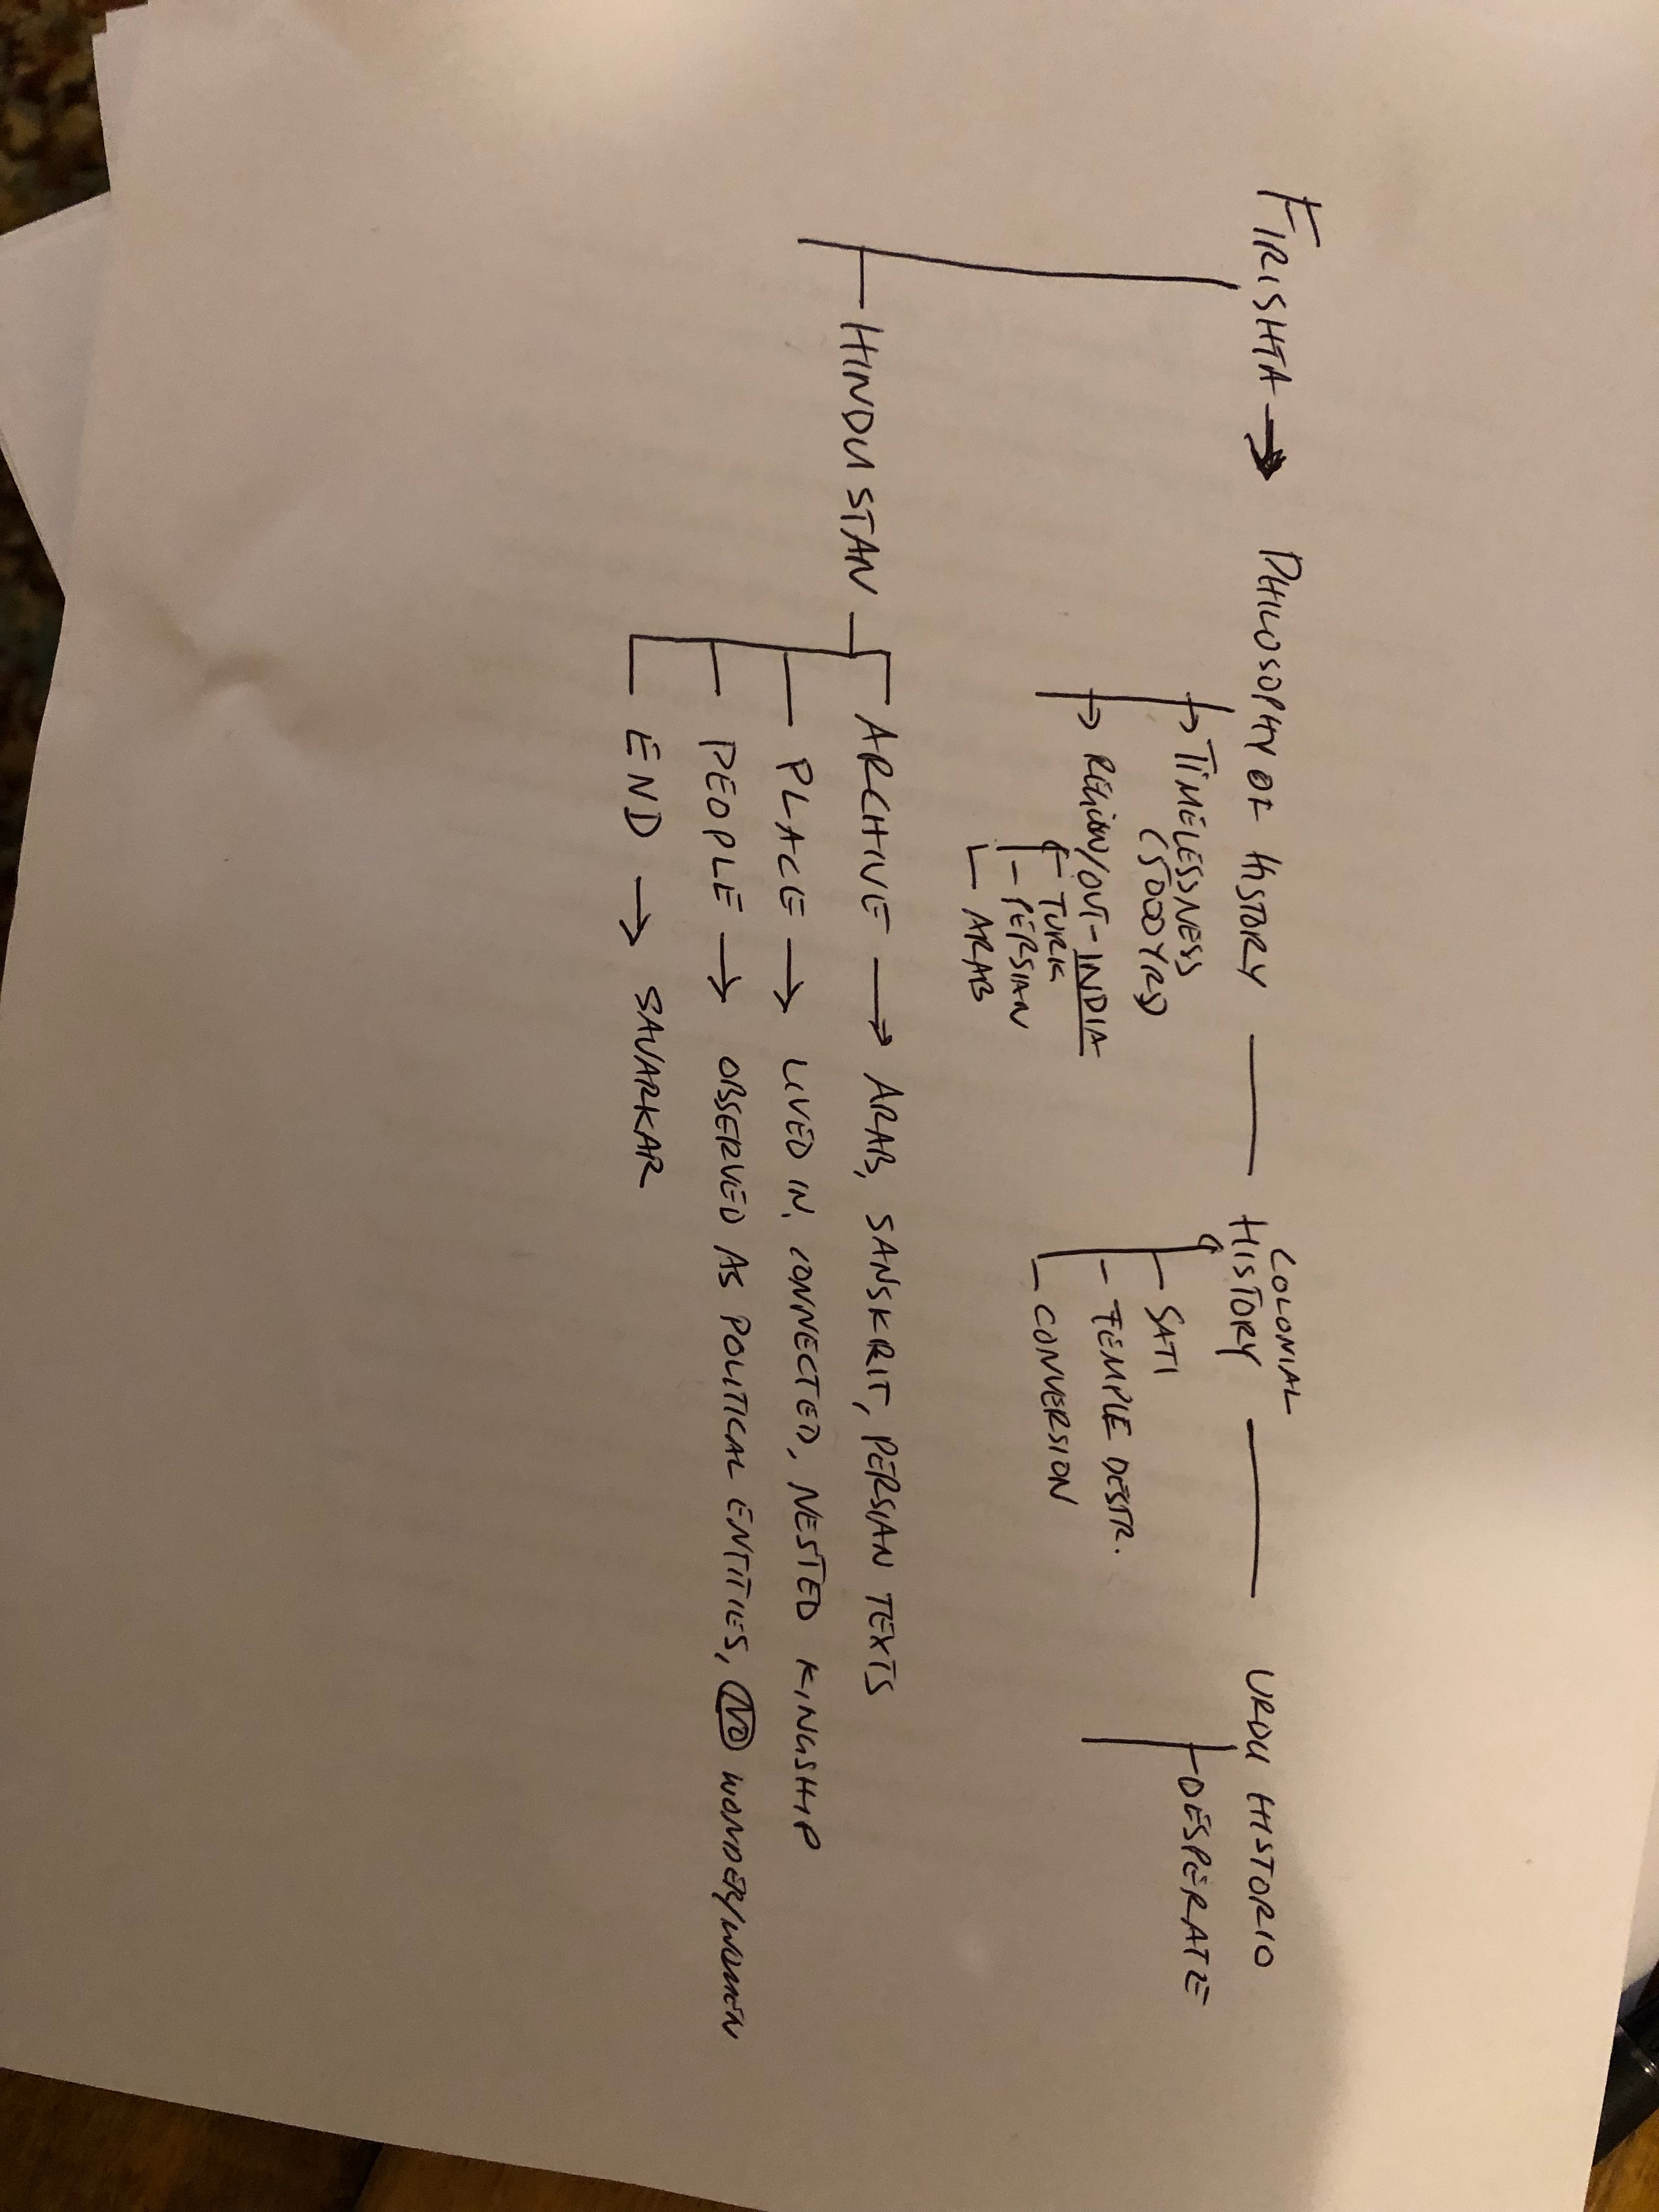 FIRISHTA → PHILOSOPHY OF HISTORY — COLONIAL HISTORY — URDU HISTORIO
TIMELESSNESS
(5000 YRS)
REGION/OUT-INDIA
TURK
PERSIAN
ARAB
SATI
TEMPLE DESTR.
CONVERSION
DESPERATE
HINDUSTAN
ARCHIVE → ARAB, SANSKRIT, PERSIAN TEXTS
PLACE → LIVED IN, CONNECTED, NESTED KINGSHIP
PEOPLE → OBSERVED AS POLITICAL ENTITIES, NO WONDER/WOMEN
END → SAVARKAR